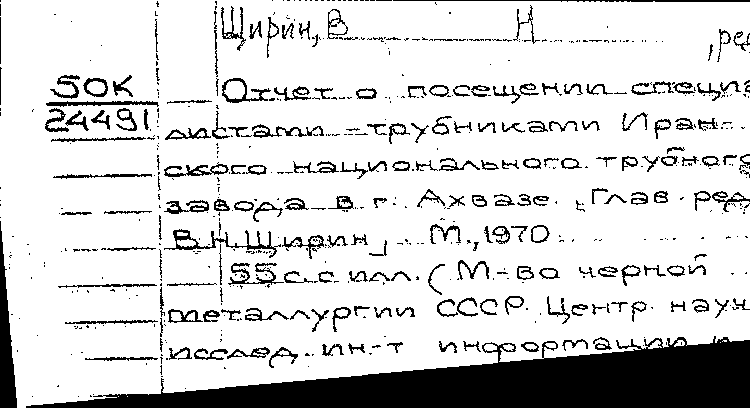 Щирин, В Н
, ред
50К
24491
Отчет о посещении специа
листами-трубниками Иран-
ского национального трубного
завода в г. Ахвазе. [Глав. ред.
В.Н. Щирин] М., 1970
55 с. с илл. (М-во черной
металлургии СССР. Центр. науч
исслед. ин-т информации и